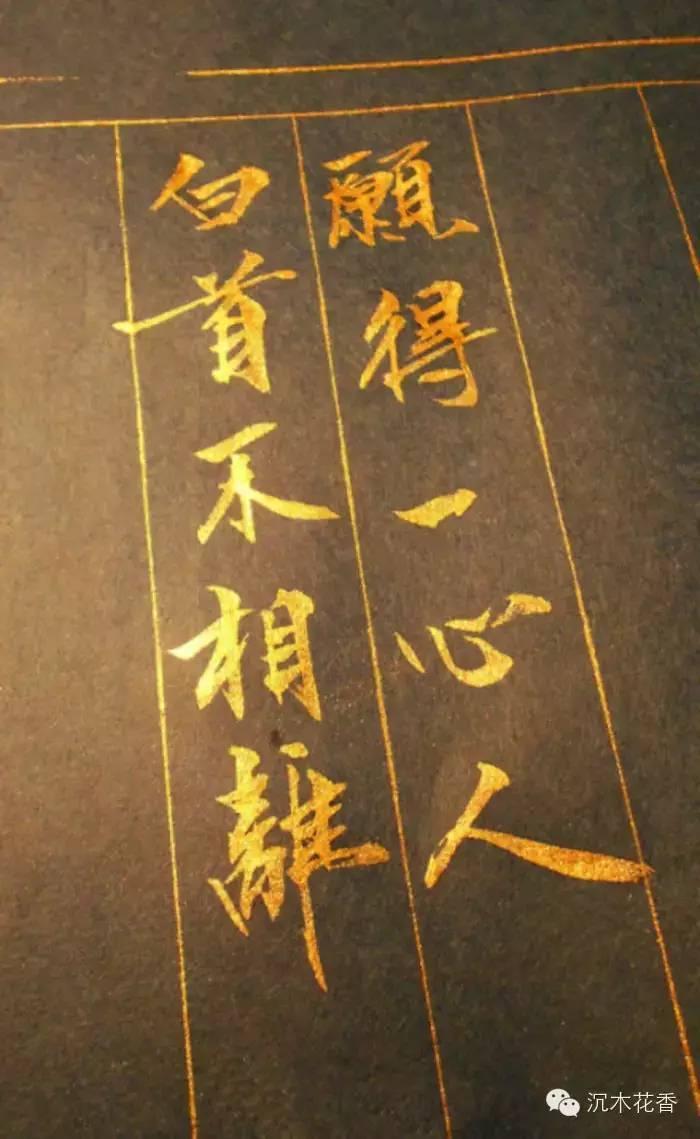 願得一心人
白首不相離
沉木花香